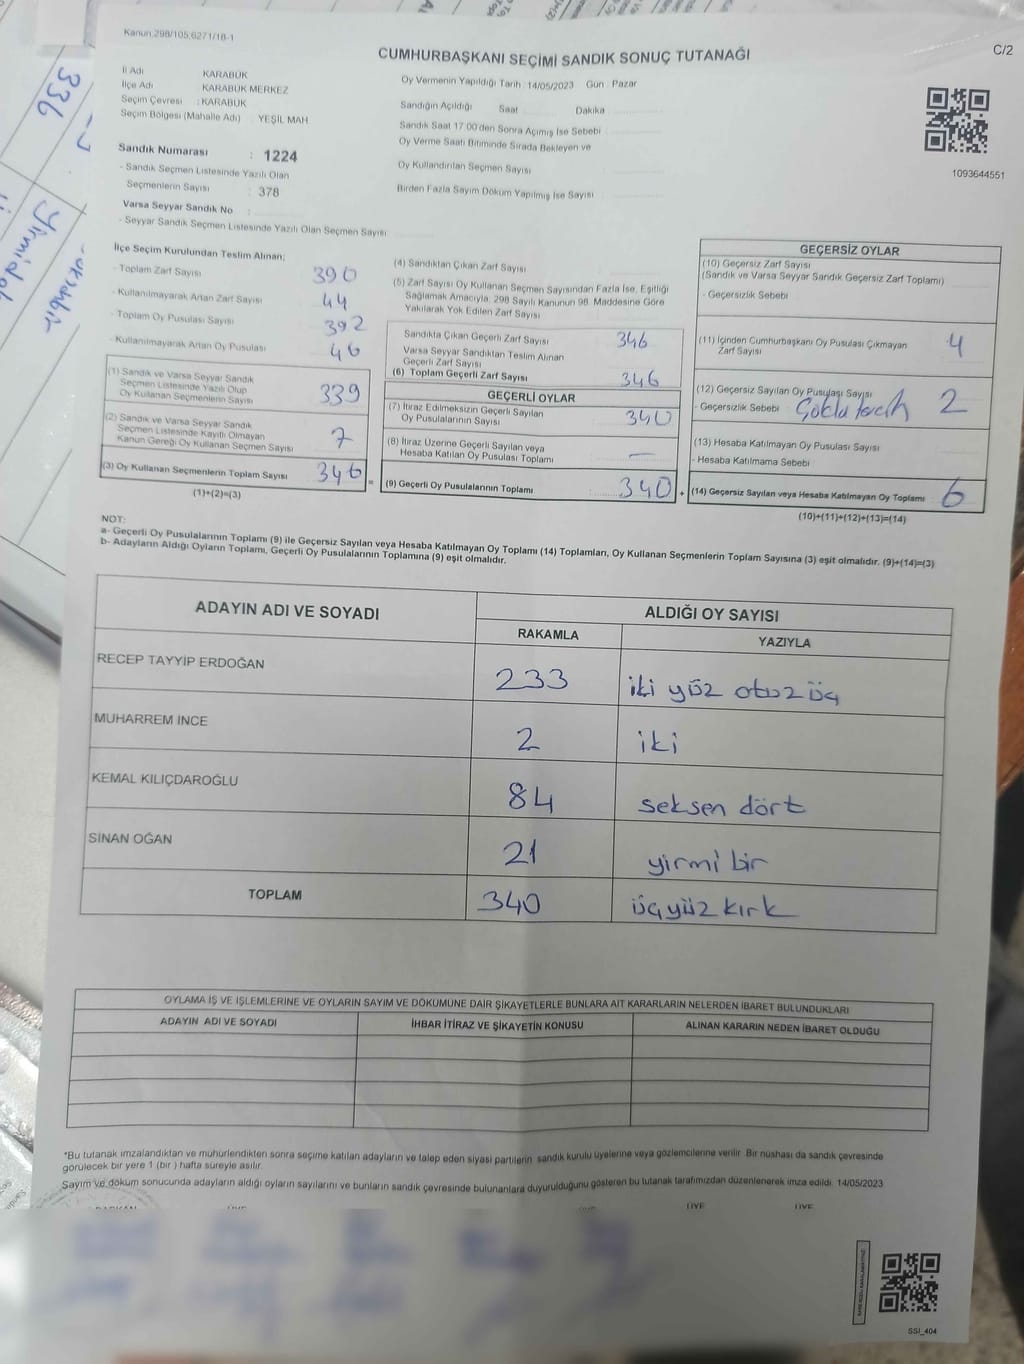 Kanun:298/105,6271/18-1
CUMHURBAŞKANI SEÇİMİ SANDIK SONUÇ TUTANAĞI
C/2
İl Adı KARABÜK
İlçe Adı KARABÜK MERKEZ
Seçim Çevresi : KARABÜK
Seçim Bölgesi (Mahalle Adı) : YEŞİL MAH
Sandık Numarası : 1224
- Sandık Seçmen Listesinde Yazılı Olan
Seçmenlerin Sayısı : 378
Varsa Seyyar Sandık No :
- Seyyar Sandık Seçmen Listesinde Yazılı Olan Seçmen Sayısı
Oy Vermenin Yapıldığı Tarih : 14/05/2023 Gün : Pazar
Sandığın Açıldığı Saat Dakika
Sandık Saat 17.00'den Sonra Açımış İse Sebebi
Oy Verme Saati Bitiminde Sırada Bekleyen ve
Oy Kullandırılan Seçmen Sayısı
Birden Fazla Sayım Döküm Yapılmış İse Sayısı
1093644551
İlçe Seçim Kurulundan Teslim Alınan;
- Toplam Zarf Sayısı 390
- Kullanılmayarak Artan Zarf Sayısı 44
- Toplam Oy Pusulası Sayısı 392
- Kullanılmayarak Artan Oy Pusulası 46
(1) Sandık ve Varsa Seyyar Sandık
Seçmen Listesinde Yazılı Olup
Oy Kullanan Seçmenlerin Sayısı 339
(2) Sandık ve Varsa Seyyar Sandık
Seçmen Listesinde Kayıtlı Olmayan
Kanun Gereği Oy Kullanan Seçmen Sayısı 7
(3) Oy Kullanan Seçmenlerin Toplam Sayısı 346
(1)+(2)=(3)
(4) Sandıktan Çıkan Zarf Sayısı
(5) Zarf Sayısı Oy Kullanan Seçmen Sayısından Fazla İse, Eşitliği
Sağlamak Amacıyla, 298 Sayılı Kanunun 98. Maddesine Göre
Yakılarak Yok Edilen Zarf Sayısı
Sandıkta Çıkan Geçerli Zarf Sayısı 346
Varsa Seyyar Sandıktan Teslim Alınan
Geçerli Zarf Sayısı
(6) Toplam Geçerli Zarf Sayısı 346
GEÇERLİ OYLAR
(7) İtiraz Edilmeksizin Geçerli Sayılan
Oy Pusulalarının Sayısı 340
(8) İtiraz Üzerine Geçerli Sayılan veya
Hesaba Katılan Oy Pusulası Toplamı —
(9) Geçerli Oy Pusulalarının Toplamı 340
= +
GEÇERSİZ OYLAR
(10) Geçersiz Zarf Sayısı
(Sandık ve Varsa Seyyar Sandık Geçersiz Zarf Toplamı)
- Geçersizlik Sebebi
(11) İçinden Cumhurbaşkanı Oy Pusulası Çıkmayan
Zarf Sayısı 4
(12) Geçersiz Sayılan Oy Pusulası Sayısı
- Geçersizlik Sebebi 2
(13) Hesaba Katılmayan Oy Pusulası Sayısı
- Hesaba Katılmama Sebebi
(14) Geçersiz Sayılan veya Hesaba Katılmayan Oy Toplamı 6
(10)+(11)+(12)+(13)=(14)
NOT:
a- Geçerli Oy Pusulalarının Toplamı (9) ile Geçersiz Sayılan veya Hesaba Katılmayan Oy Toplamı (14) Toplamları, Oy Kullanan Seçmenlerin Toplam Sayısına (3) eşit olmalıdır. (9)+(14)=(3)
b- Adayların Aldığı Oyların Toplamı, Geçerli Oy Pusulalarının Toplamına (9) eşit olmalıdır.
ADAYIN ADI VE SOYADI
ALDIĞI OY SAYISI
RAKAMLA YAZIYLA
RECEP TAYYİP ERDOĞAN 233 iki yüz otuz üç
MUHARREM İNCE 2 iki
KEMAL KILIÇDAROĞLU 84 seksen dört
SİNAN OĞAN 21 yirmi bir
TOPLAM 340 üçyüz kırk
OYLAMA İŞ VE İŞLEMLERİNE VE OYLARIN SAYIM VE DÖKÜMÜNE DAİR ŞİKAYETLERLE BUNLARA AİT KARARLARIN NELERDEN İBARET BULUNDUKLARI
ADAYIN ADI VE SOYADI İHBAR İTİRAZ VE ŞİKAYETİN KONUSU ALINAN KARARIN NEDEN İBARET OLDUĞU
*Bu tutanak imzalandıktan ve mühürlendikten sonra seçime katılan adayların ve talep eden siyasi partilerin sandık kurulu üyelerine veya gözlemcilerine verilir. Bir nüshası da sandık çevresinde
görülecek bir yere 1 (bir ) hafta süreyle asılır.
Sayım ve döküm sonucunda adayların aldığı oyların sayılarını ve bunların sandık çevresinde bulunanlara duyurulduğunu gösteren bu tutanak tarafımızdan düzenlenerek imza edildi. 14/05/2023
ÜYE ÜYE
SSI_404
336